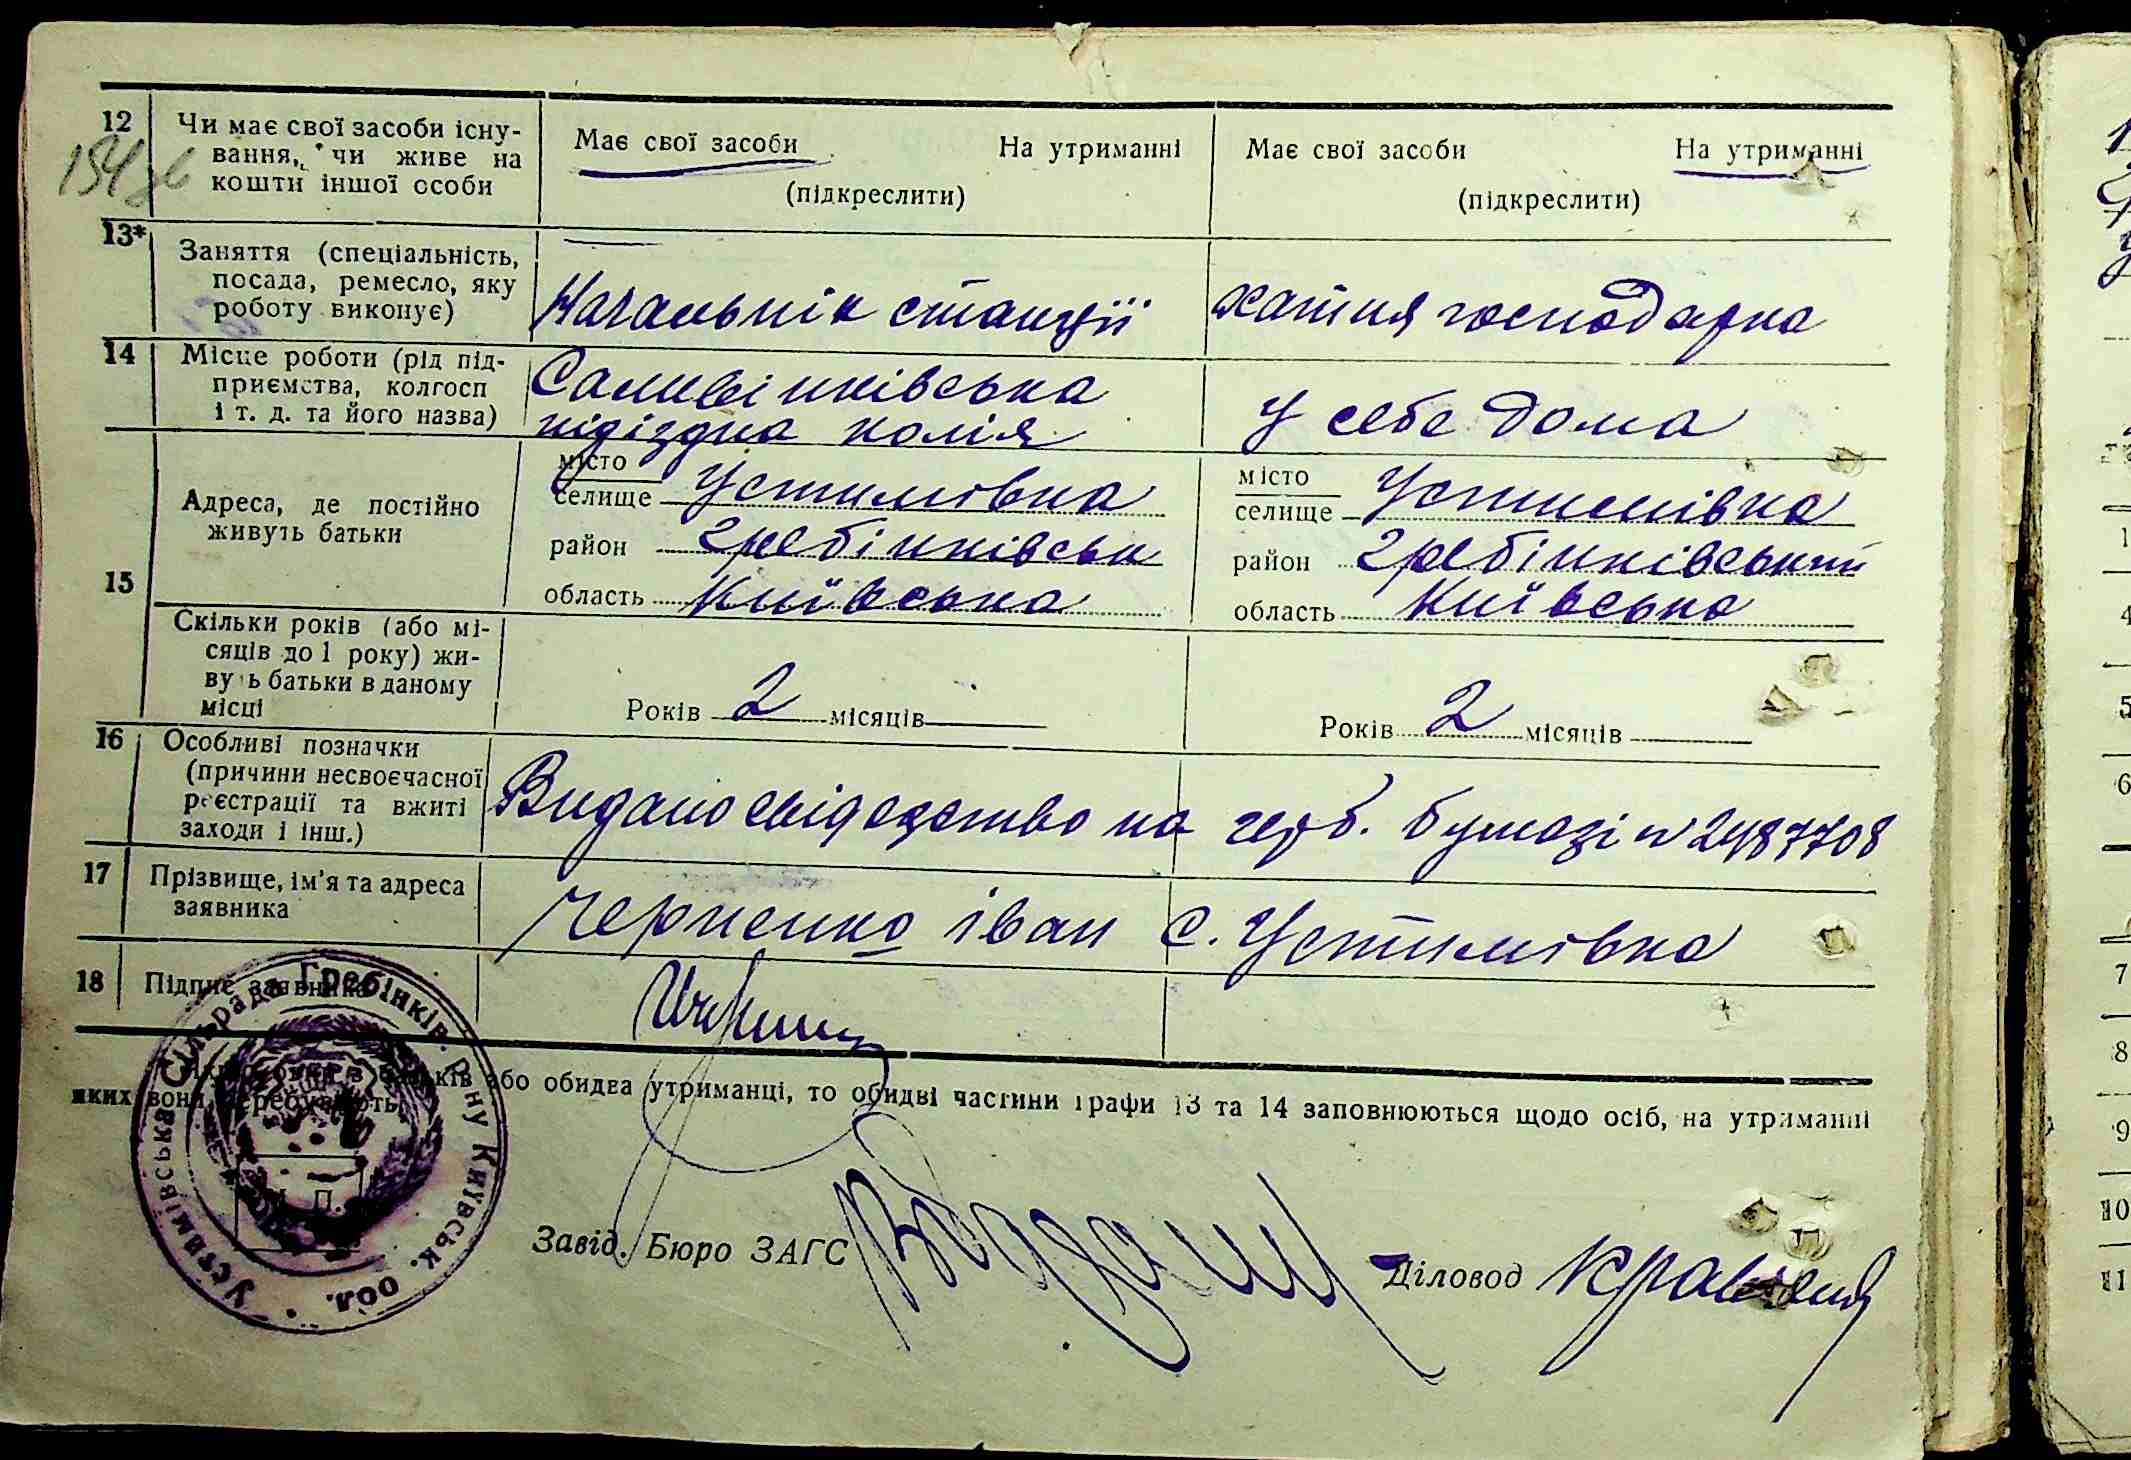 12
154
Чи має свої засоби існу-
вання, чи живе на
кошти іншої особи
Має свої засоби На утриманні
(підкреслити)
Має свої засоби На утриманні
(підкреслити)
13*
Заняття (спеціальність,
посада, ремесло, яку
роботу виконує)
Начальнік станції
хатня господарка
14
Місце роботи (рід під-
приємства, колгосп
і т. д. та його назва)
Саливінківська
підіздна колія
У себе дома
15
Адреса, де постійно
живуть батьки
місто
селище Устимовка
район Гребінківськ
область Київська
місто
селище Устимівка
район Гребінківський
область Київська
Скільки років (або мі-
сяців до 1 року) жи-
вуть батьки в даному
місці
Років 2 місяців
Років 2 місяців
16
Особливі позначки
(причини несвоєчасної
реєстрації та вжиті
заходи і інш.)
Видано свідоцтво на герб. бумазі № 2487708
17
Прізвище, ім'я та адреса
заявника
Черненко Іван с. Устимовка
18
Підпис заявника
батьків або обидва утриманці, то обидві частини графи 13 та 14 заповнюються щодо осіб, на утриманні
яких вони перебувають.
Устимівська Сільрада Гребінків. р-ну Київськ. обл.
П.
Завід. Бюро ЗАГС
Діловод